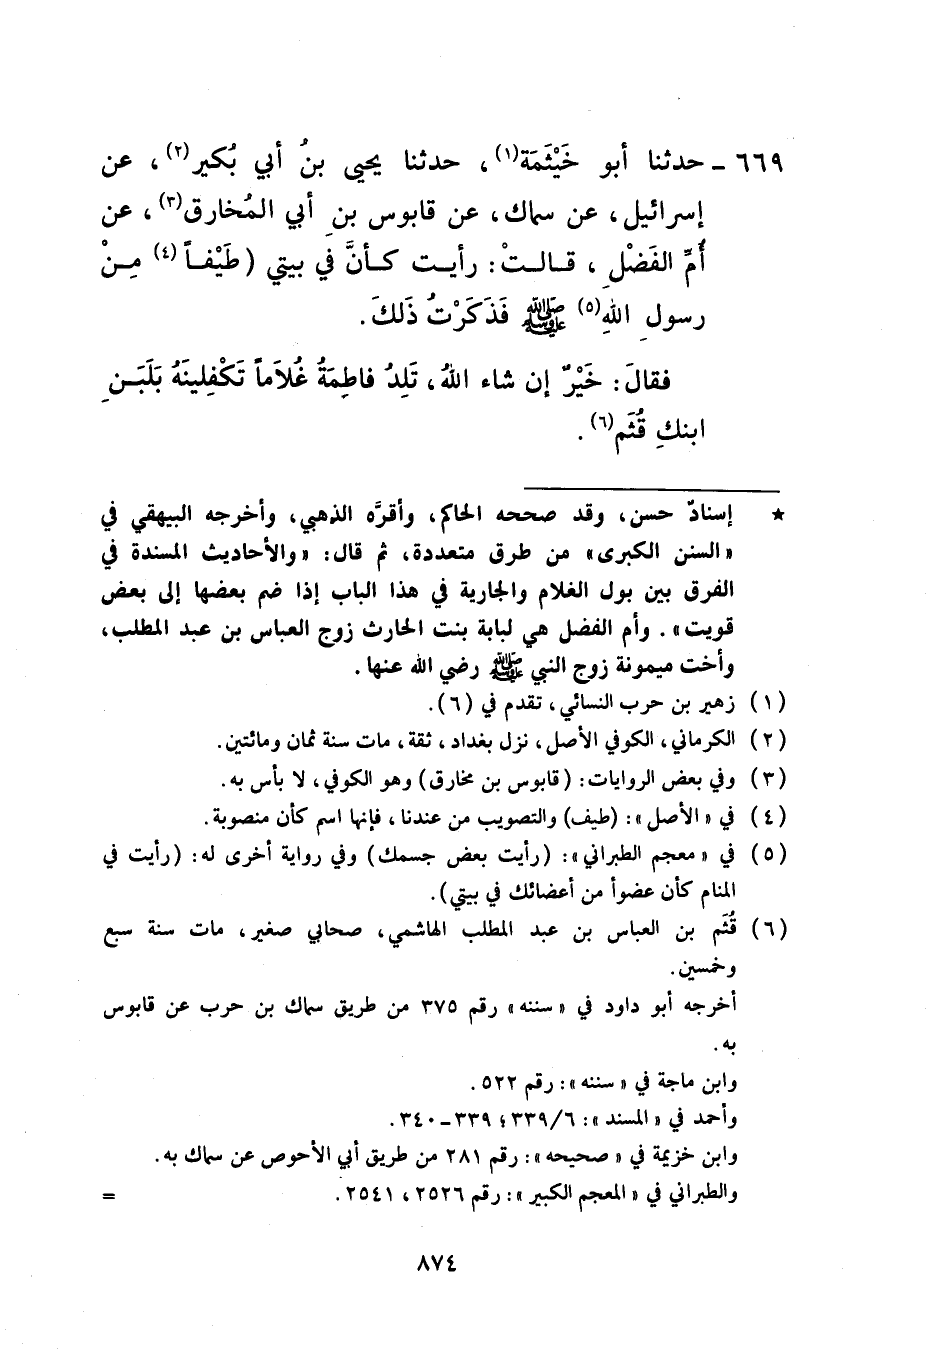 ٦٦٩ - حدثنا أبو خَيْثَمَة(١)، حدثنا يحيى بنُ أبي بُكير(٢)، عن
إسرائيل، عن سماك، عن قابوس بنِ أبي المُخارق(٣)، عن
أُمِّ الفَضْلِ، قـالـتْ: رأيـت كـأنَّ في بيتي (طَيْفـاً(٤) مِـنْ
رسولِ اللهِ(٥) ﷺ فَذَكَرْتُ ذَلكَ.
فقالَ: خَيْرٌ إن شاء اللهُ، تَلِدُ فاطِمَةُ غُلاَماً تَكْفِلِينَهُ بَلَبَـنِ
ابنكِ قُثَم(٦).
★ إسنادٌ حسن، وقد صححه الحاكم، وأقرَّه الذهبي، وأخرجه البيهقي في
«السنن الكبرى» من طرق متعددة، ثم قال: «والأحاديث المسندة في
الفرق بين بول الغلام والجارية في هذا الباب إذا ضم بعضها إلى بعض
قويت». وأم الفضل هي لبابة بنت الحارث زوج العباس بن عبد المطلب،
وأخت ميمونة زوج النبي ﷺ رضي الله عنها.
(١) زهير بن حرب النسائي، تقدم في (٦).
(٢) الكرماني، الكوفي الأصل، نزل بغداد، ثقة، مات سنة ثمان ومائتين.
(٣) وفي بعض الروايات: (قابوس بن مخارق) وهو الكوفي، لا بأس به.
(٤) في «الأصل»: (طيف) والتصويب من عندنا، فإنها اسم كأن منصوبة.
(٥) في «معجم الطبراني»: (رأيت بعض جسمك) وفي رواية أخرى له: (رأيت في
المنام كأن عضواً من أعضائك في بيتي).
(٦) قُثَم بن العباس بن عبد المطلب الهاشمي، صحابي صغير، مات سنة سبع
وخمسين.
أخرجه أبو داود في «سننه» رقم ٣٧٥ من طريق سماك بن حرب عن قابوس
به.
وابن ماجة في «سننه»: رقم ٥٢٢.
وأحمد في «المسند»: ٣٣٩/٦؛ ٣٣٩ - ٣٤٠.
وابن خزيمة في «صحيحه»: رقم ٢٨١ من طريق أبي الأحوص عن سماك به.
والطبراني في «المعجم الكبير»: رقم ٢٥٢٦، ٢٥٤١. =
٨٧٤